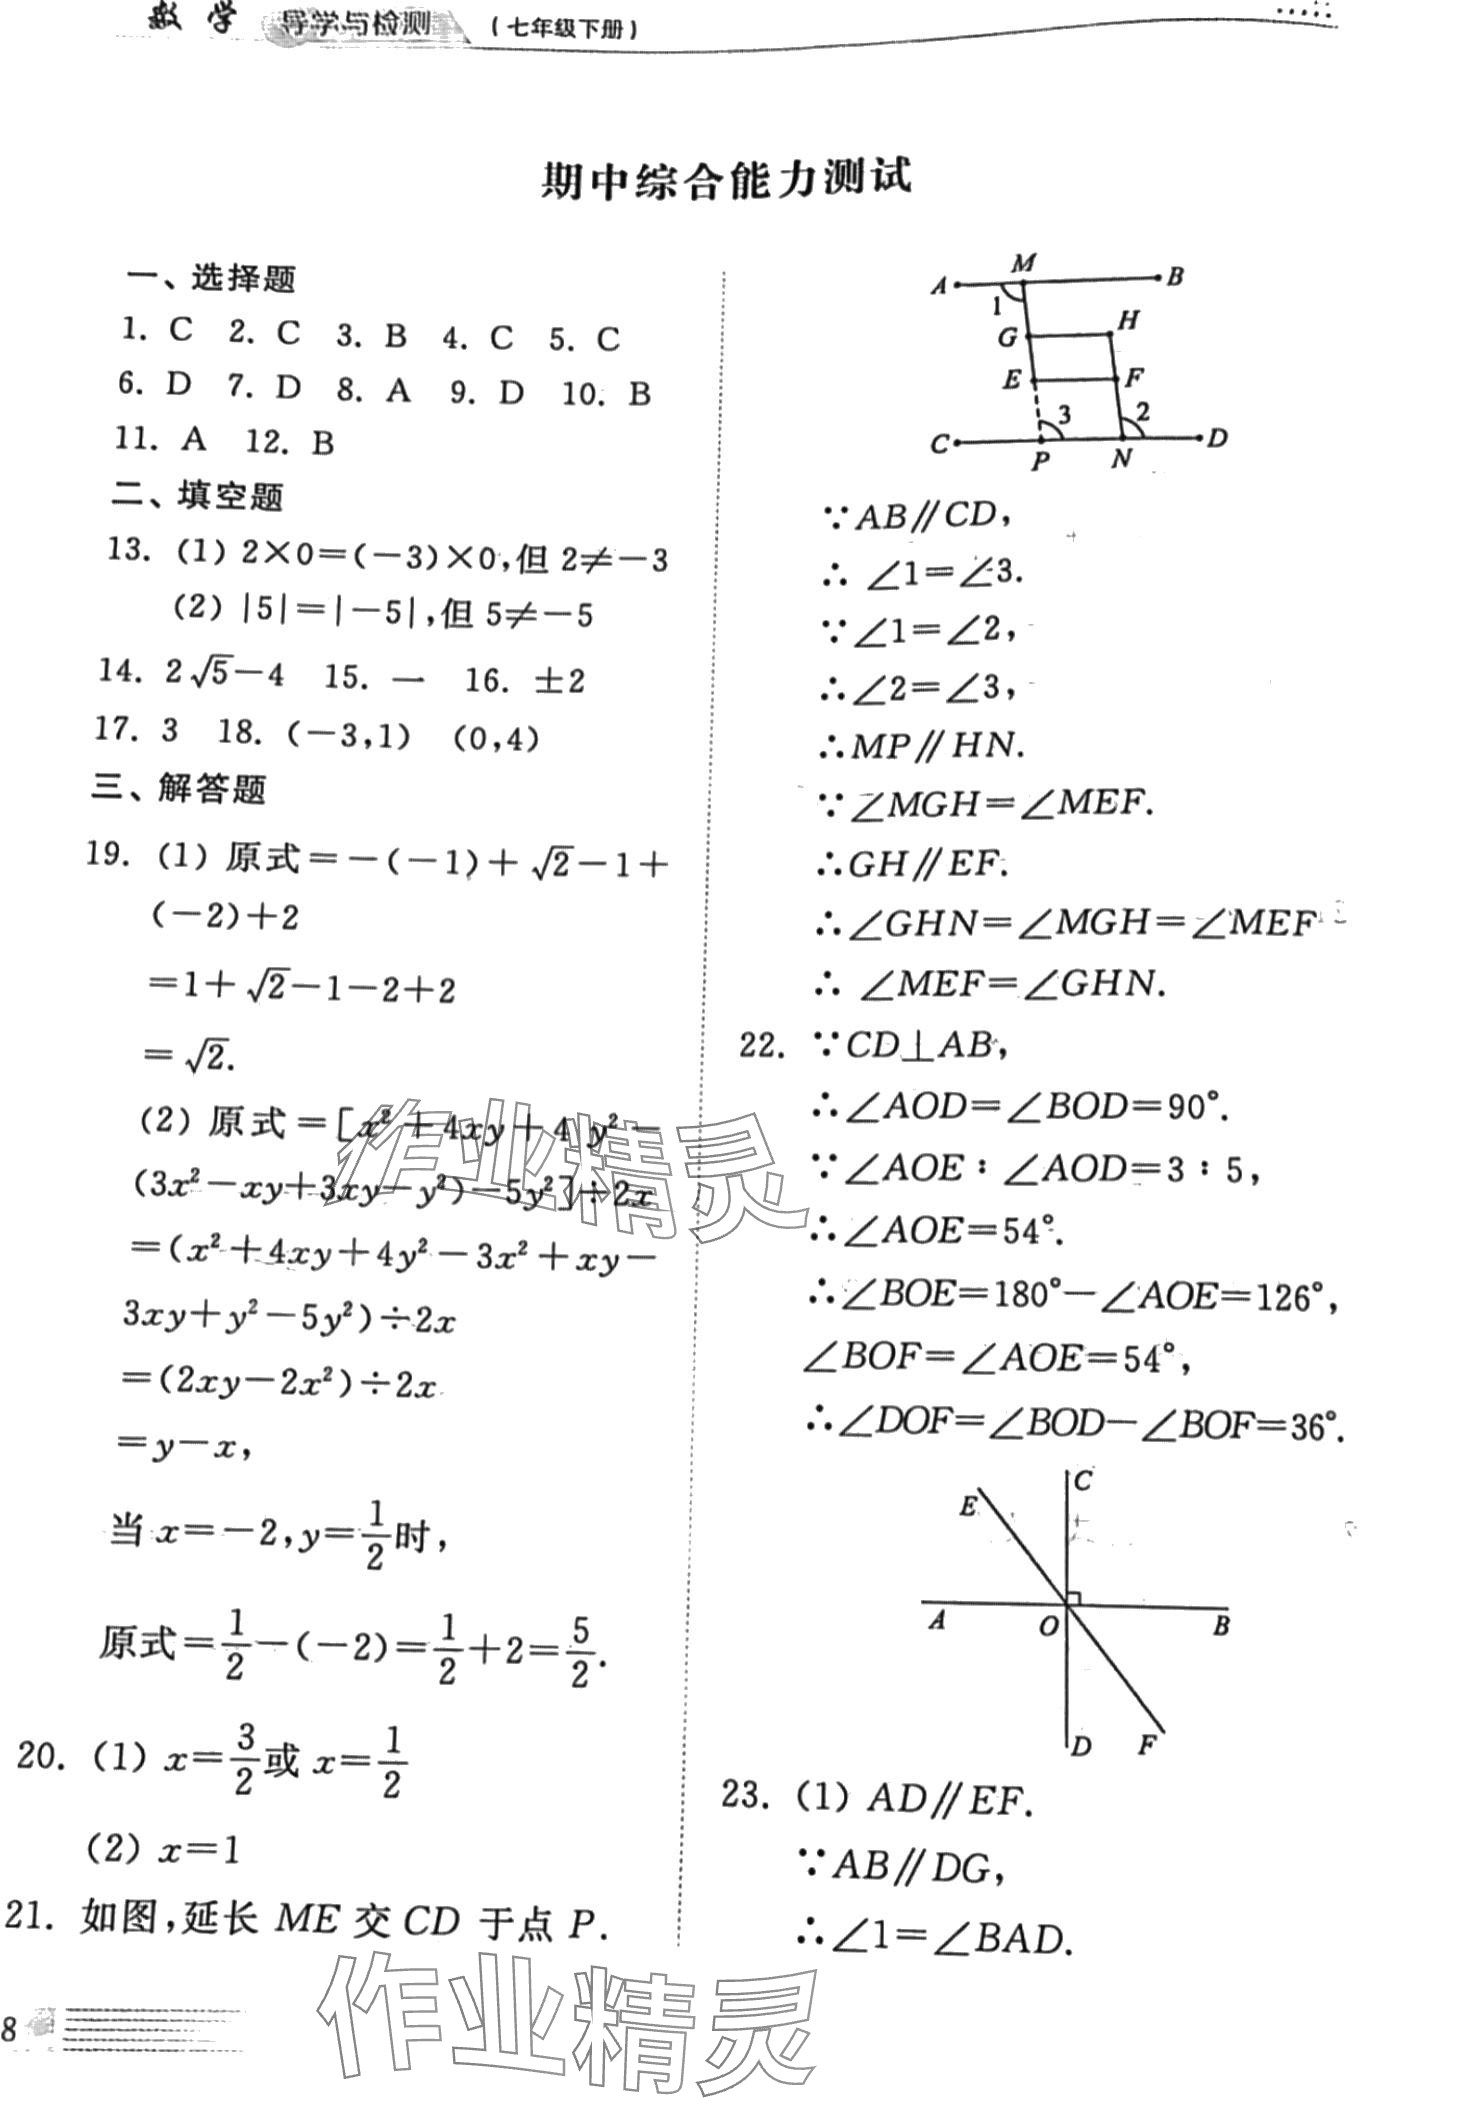 数学 导学与检测 (七年级下册)
期中综合能力测试
一、选择题
1. C 2. C 3. B 4. C 5. C
6. D 7. D 8. A 9. D 10. B
11. A 12. B
二、填空题
13. (1) 2×0=(-3)×0,但 2≠-3
(2) |5|=|-5|,但 5≠-5
14. 2√5-4 15. 一 16. ±2
17. 3 18. (-3,1) (0,4)
三、解答题
19. (1) 原式=-(-1)+√2-1+
(-2)+2
=1+√2-1-2+2
=√2.
(2) 原式=[x²+4xy+4y²-
(3x²-xy+3xy-y²)-5y²]÷2x
=(x²+4xy+4y²-3x²+xy-
3xy+y²-5y²)÷2x
=(2xy-2x²)÷2x
=y-x,
当 x=-2,y=1/2时,
原式=1/2-(-2)=1/2+2=5/2.
20. (1) x=3/2或 x=1/2
(2) x=1
21. 如图,延长 ME 交 CD 于点 P.
A M B
1
G H
E F
3 2
C P N D
∵AB∥CD,
∴ ∠1=∠3.
∵∠1=∠2,
∴∠2=∠3,
∴MP∥HN.
∵∠MGH=∠MEF.
∴GH∥EF.
∴∠GHN=∠MGH=∠MEF
∴ ∠MEF=∠GHN.
22. ∵CD⊥AB,
∴∠AOD=∠BOD=90°.
∵∠AOE:∠AOD=3:5,
∴∠AOE=54°.
∴∠BOE=180°-∠AOE=126°,
∠BOF=∠AOE=54°,
∴∠DOF=∠BOD-∠BOF=36°.
E C
A O B
D F
23. (1) AD∥EF.
∵AB∥DG,
∴∠1=∠BAD.
作业精灵
作业精灵
8